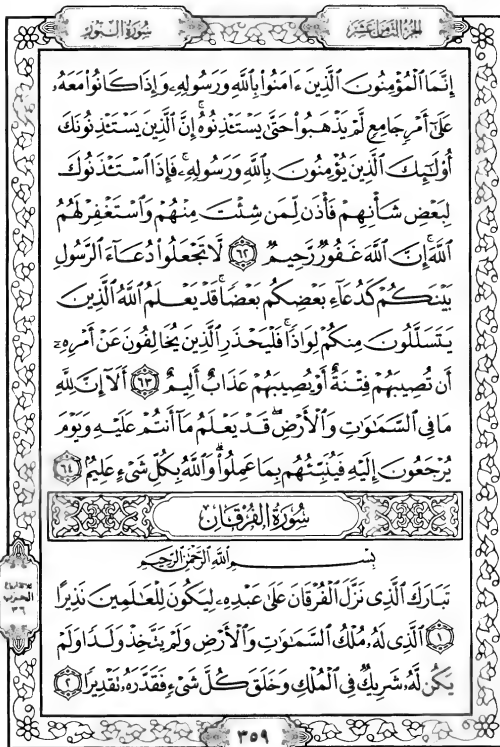 الجزء الثامن عشر
سورة النور
إِنَّمَا ٱلْمُؤْمِنُونَ ٱلَّذِينَ ءَامَنُوا۟ بِٱللَّهِ وَرَسُولِهِۦ وَإِذَا كَانُوا۟ مَعَهُۥ
عَلَىٰٓ أَمْرٍ جَامِعٍ لَّمْ يَذْهَبُوا۟ حَتَّىٰ يَسْتَـْٔذِنُوهُ ۚ إِنَّ ٱلَّذِينَ يَسْتَـْٔذِنُونَكَ
أُو۟لَـٰٓئِكَ ٱلَّذِينَ يُؤْمِنُونَ بِٱللَّهِ وَرَسُولِهِۦ ۚ فَإِذَا ٱسْتَـْٔذَنُوكَ
لِبَعْضِ شَأْنِهِمْ فَأْذَن لِّمَن شِئْتَ مِنْهُمْ وَٱسْتَغْفِرْ لَهُمُ
ٱللَّهَ ۚ إِنَّ ٱللَّهَ غَفُورٌ رَّحِيمٌ ٦٢ لَّا تَجْعَلُوا۟ دُعَآءَ ٱلرَّسُولِ
بَيْنَكُمْ كَدُعَآءِ بَعْضِكُم بَعْضًا ۚ قَدْ يَعْلَمُ ٱللَّهُ ٱلَّذِينَ
يَتَسَلَّلُونَ مِنكُمْ لِوَاذًا ۚ فَلْيَحْذَرِ ٱلَّذِينَ يُخَالِفُونَ عَنْ أَمْرِهِۦٓ
أَن تُصِيبَهُمْ فِتْنَةٌ أَوْ يُصِيبَهُمْ عَذَابٌ أَلِيمٌ ٦٣ أَلَآ إِنَّ لِلَّهِ
مَا فِى ٱلسَّمَـٰوَٰتِ وَٱلْأَرْضِ ۖ قَدْ يَعْلَمُ مَآ أَنتُمْ عَلَيْهِ وَيَوْمَ
يُرْجَعُونَ إِلَيْهِ فَيُنَبِّئُهُم بِمَا عَمِلُوا۟ ۗ وَٱللَّهُ بِكُلِّ شَىْءٍ عَلِيمٌۢ ٦٤
سُورَةُ الفُرْقَان
بِسْمِ ٱللَّهِ ٱلرَّحْمَـٰنِ ٱلرَّحِيمِ
تَبَارَكَ ٱلَّذِى نَزَّلَ ٱلْفُرْقَانَ عَلَىٰ عَبْدِهِۦ لِيَكُونَ لِلْعَـٰلَمِينَ نَذِيرًا
١ ٱلَّذِى لَهُۥ مُلْكُ ٱلسَّمَـٰوَٰتِ وَٱلْأَرْضِ وَلَمْ يَتَّخِذْ وَلَدًا وَلَمْ
يَكُن لَّهُۥ شَرِيكٌ فِى ٱلْمُلْكِ وَخَلَقَ كُلَّ شَىْءٍ فَقَدَّرَهُۥ تَقْدِيرًا ٢
الحزب
٣٦
٣٥٩